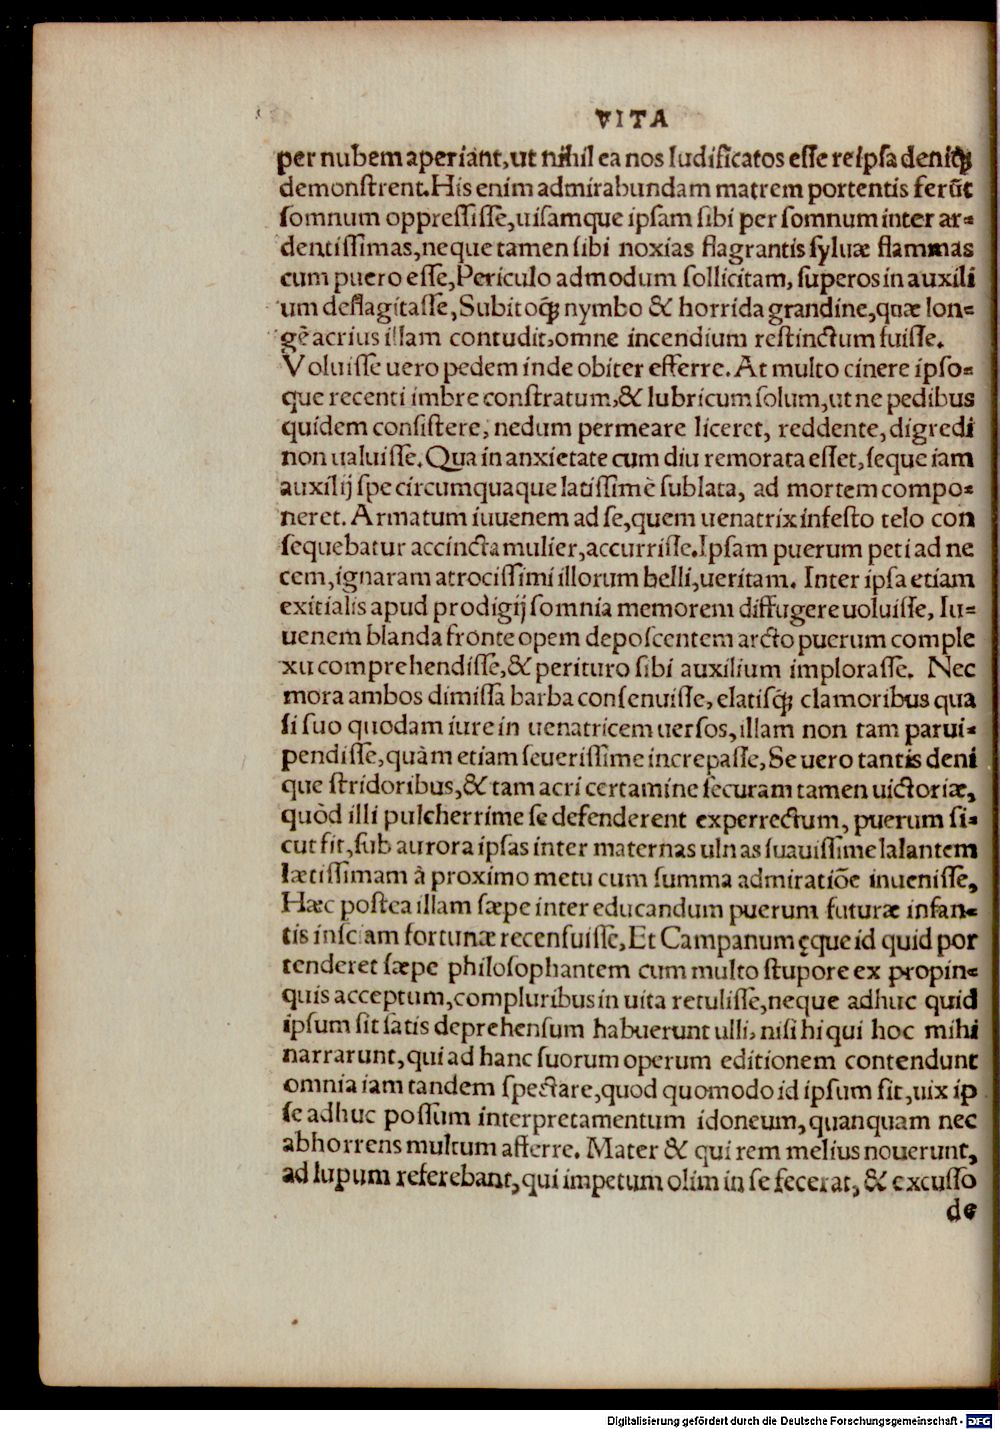 VITA
per nubem aperiant, ut nihil ea nos ludificatos esse reipsa deniq3
demonstrent. His enim admirabundam matrem portentis ferūt
somnum oppressisse, uisamque ipsam sibi per somnum inter ar=
dentissimas, neque tamen sibi noxias flagrantis syluæ flammas
cum puero esse, Periculo admodum sollicitam, superos in auxili
um deflagitasse, Subitoq3 nymbo & horrida grandine, quæ lon=
gè acrius illam contudit, omne incendium restinctum fuisse.
Voluisse uero pedem inde obiter efferre. At multo cinere ipso=
que recenti imbre constratum, & lubricum solum, ut ne pedibus
quidem consistere, nedum permeare liceret, reddente, digredi
non ualuisse. Qua in anxietate cum diu remorata esset, seque iam
auxilij spe circumquaque latissimè sublata, ad mortem compo=
neret. Armatum iuuenem ad se, quem uenatrix infesto telo con
sequebatur accincta mulier, accurrisse. Ipsam puerum peti ad ne
cem, ignaram atrocissimi illorum belli, ueritam. Inter ipsa etiam
exitialis apud prodigij somnia memorem diffugere uoluisse, Iu=
uenem blanda fronte opem deposcentem arcto puerum comple
xu comprehendisse, & perituro sibi auxilium implorasse. Nec
mora ambos dimissa barba consenuisse, elatisq3 clamoribus qua
si suo quodam iure in uenatricem uersos, illam non tam parui=
pendisse, quàm etiam seuerissime increpasse, Se uero tantis deni
que stridoribus, & tam acri certamine securam tamen uictoriæ,
quòd illi pulcherrime se defenderent experrectum, puerum si=
cut fit, sub aurora ipsas inter maternas ulnas suauissime lalantem
lætissimam à proximo metu cum summa admiratiōe inuenisse,
Hæc postea illam sæpe inter educandum puerum futuræ infan=
tis insciam fortunæ recensuisse, Et Campanum ęque id quid por
tenderet sæpe philosophantem cum multo stupore ex propin=
quis acceptum, compluribus in uita retulisse, neque adhuc quid
ipsum sit satis deprehensum habuerunt ulli, nisi hi qui hoc mihi
narrarunt, qui ad hanc suorum operum editionem contendunt
omnia iam tandem spectare, quod quomodo id ipsum sit, uix ip
se adhuc possum interpretamentum idoneum, quanquam nec
abhorrens multum afferre. Mater & qui rem melius nouerunt,
ad lupum referebant, qui impetum olim in se fecerat, & excusso
de
Digitalisierung gefördert durch die Deutsche Forschungsgemeinschaft - DFG